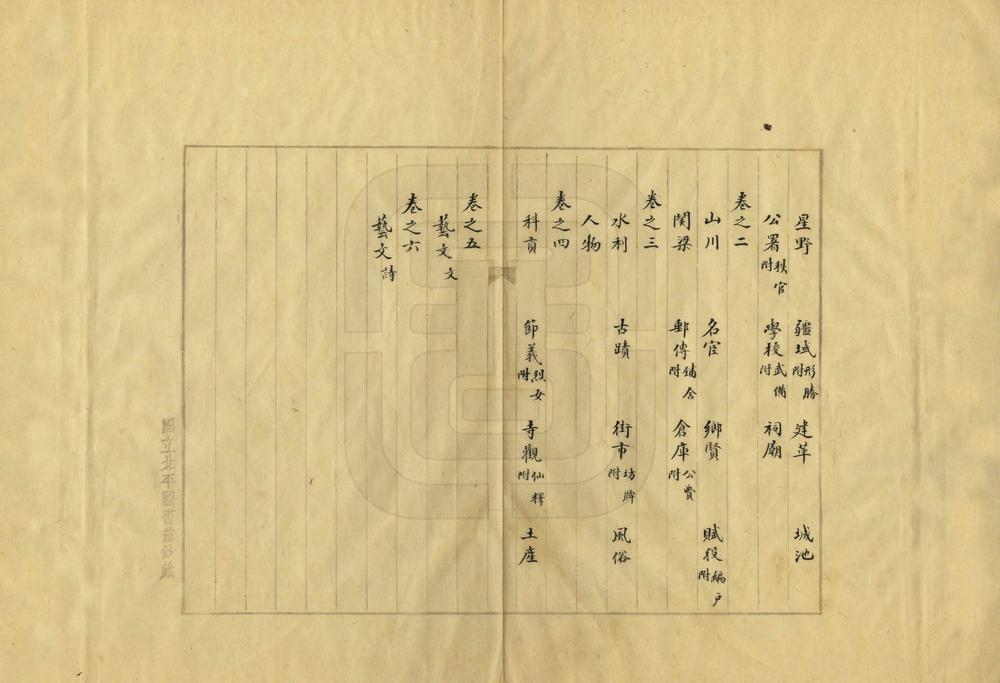 星野 疆域附形勝 建革 城池
公署附秩官 學校附武備 祠廟
卷之二
山川 名宦 鄉賢 賦役附編戶
関梁 郵傳附鋪舍 倉庫附公費
卷之三
水利 古蹟 街市附坊牌 風俗
人物
卷之四
科貢 節義附烈女 寺觀附仙釋 土産
卷之五
藝文文
卷之六
藝文詩
國立北平圖書館鈔藏